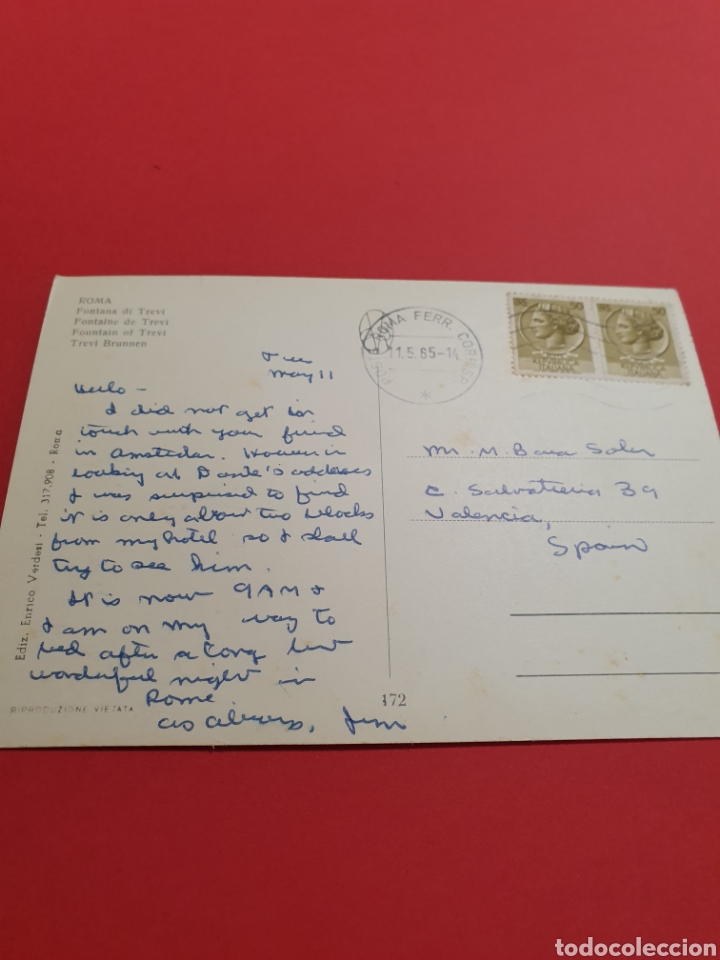 ROMA
Fontana di Trevi
Fontaine de Trevi
Fountain of Trevi
Trevi Brunnen
Tues
May 11
Hello -
I did not get in
touch with your friend
in Amsterdam. However in
looking at Dante's address
I was surprised to find
it is only about two blocks
from my hotel so I shall
try to see him.
It is now 9AM &
I am on my way to
bed after a long but
wonderful night in
Rome
as always, Jim
Ediz. Enrico Verdesi - Tel. 317.908 - Roma
RIPRODUZIONE VIETATA
172
ROMA FERR. CORRISP
11.5.65-14
50
50
REPUBBLICA
ITALIANA
REPUBBLICA
ITALIANA
Mr. M. Soler
C. Salvatierra 39
Valencia,
Spain
todocoleccion